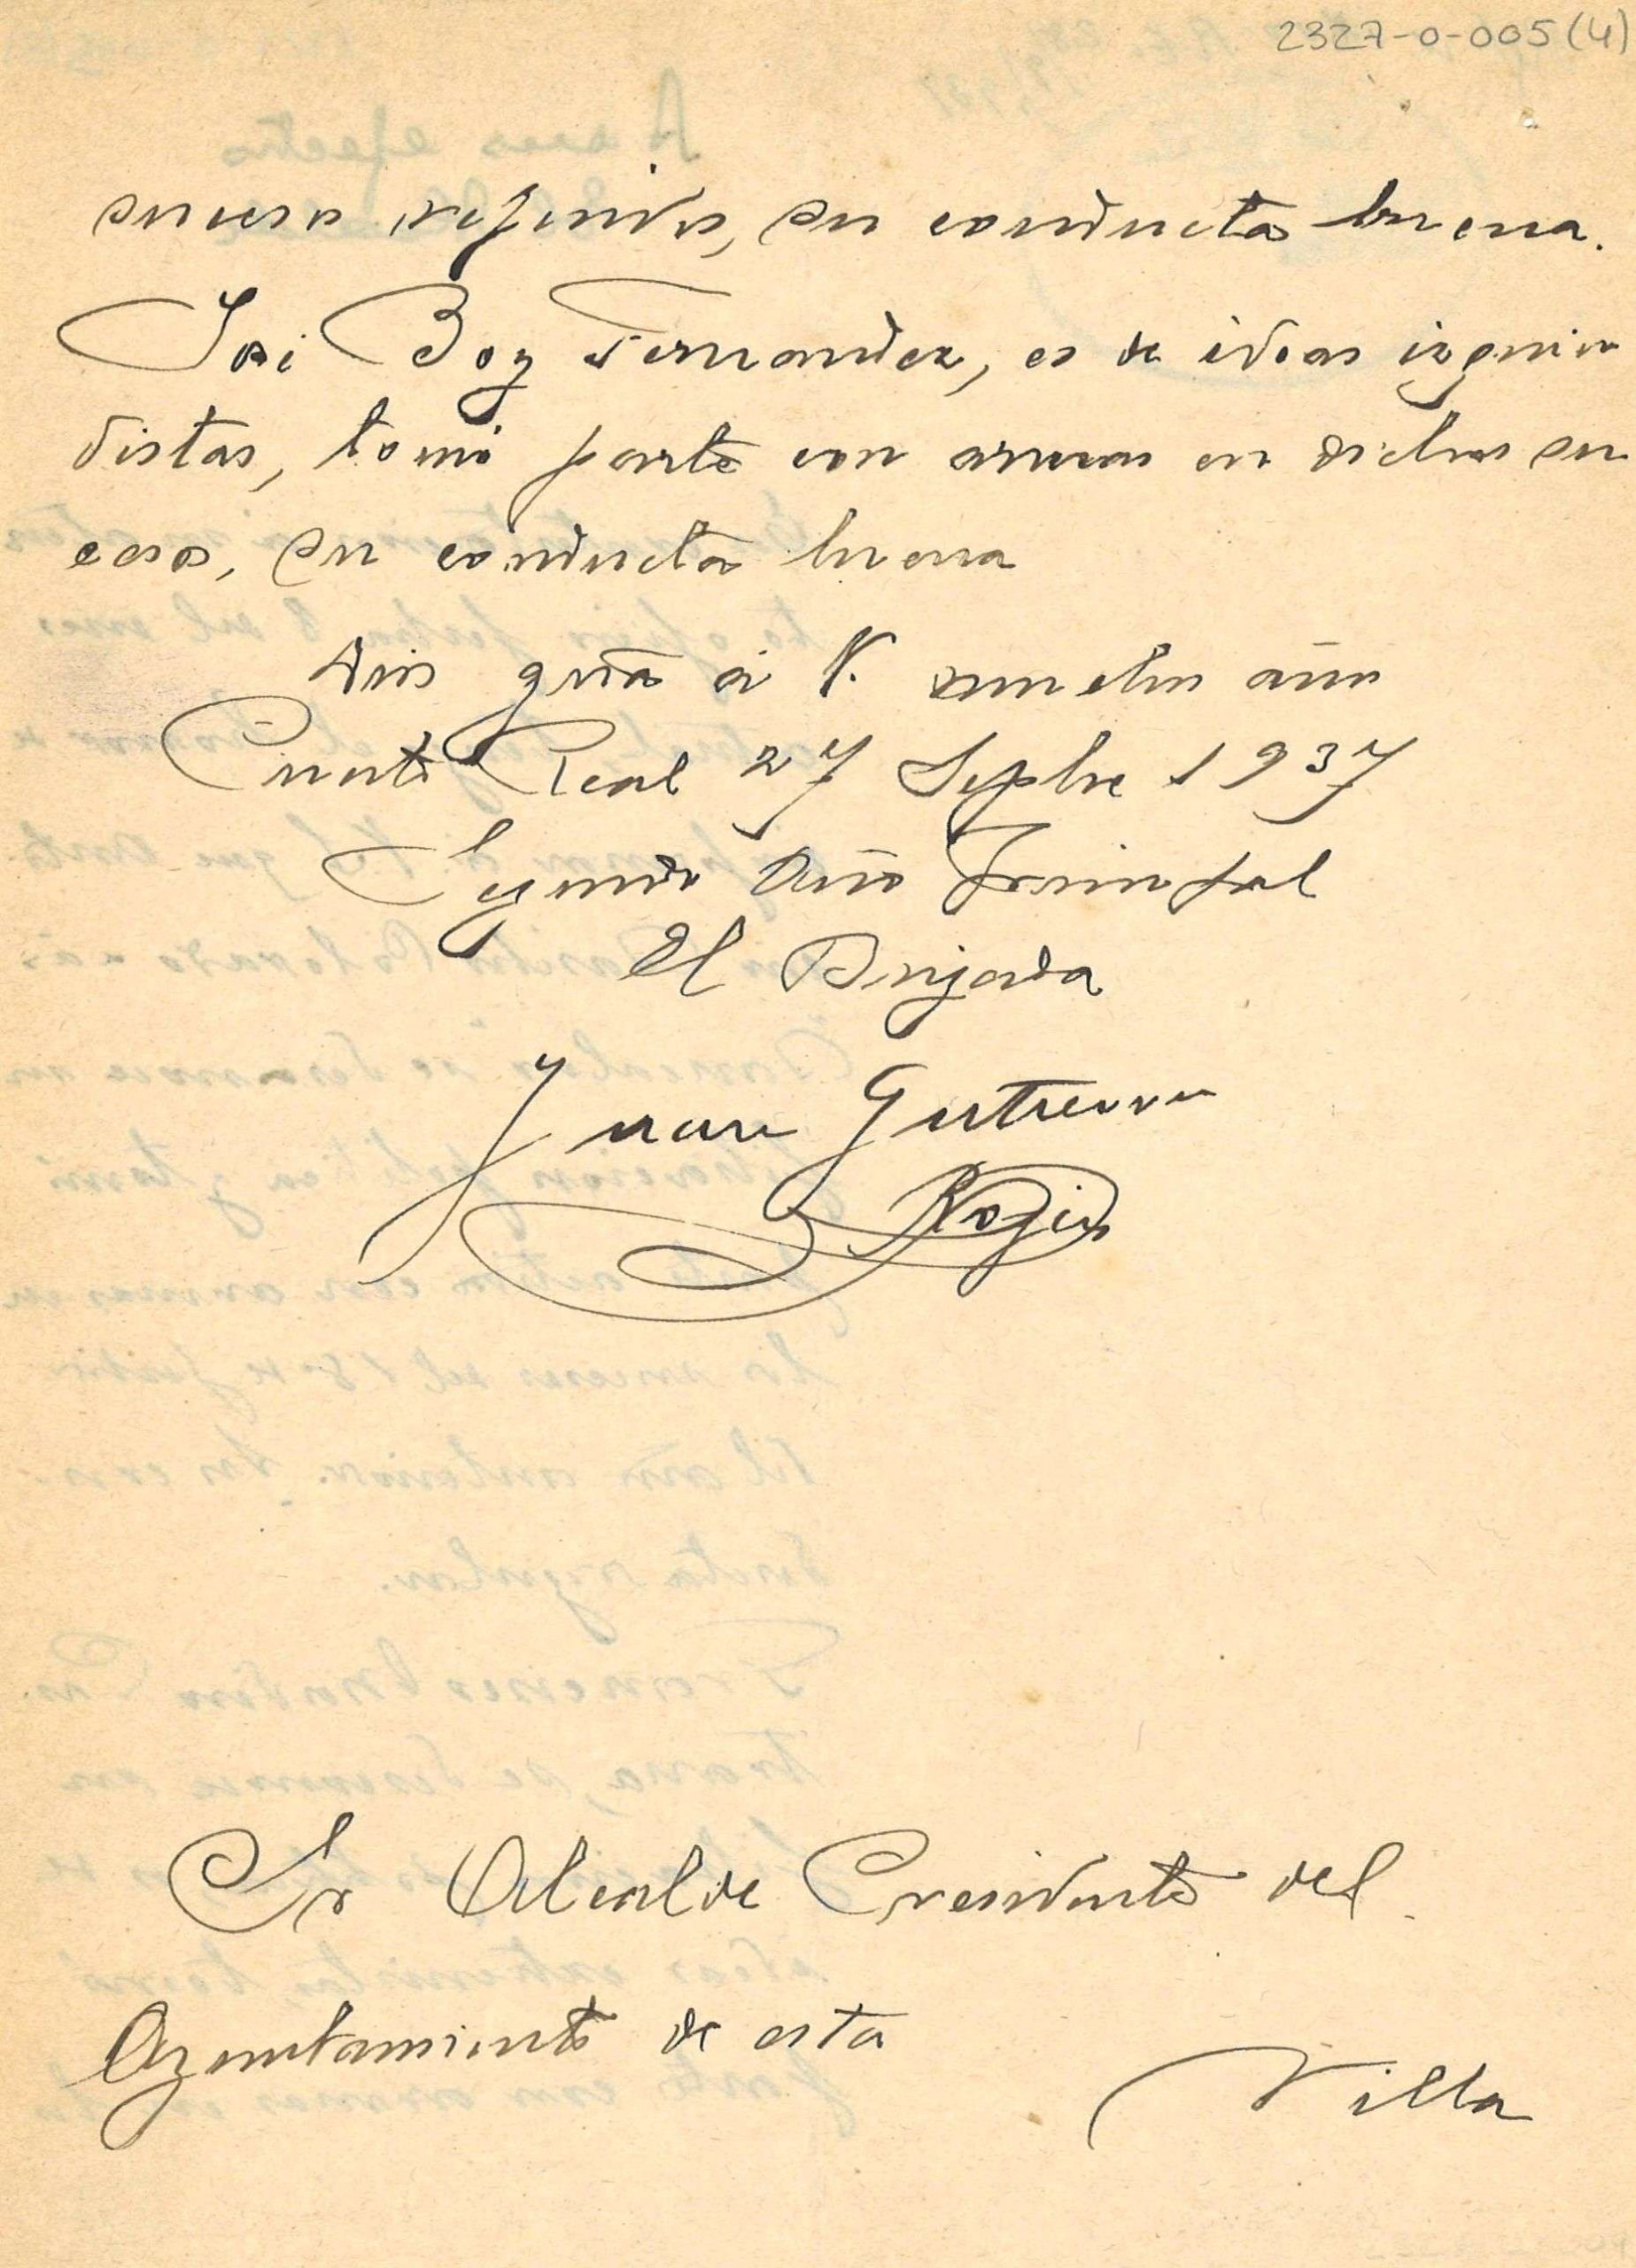 2327-0-005(4)
sucesos referidos, su conducta buena.
José Boy Fernandez, es de ideas izquier
distas, tomó parte con armas en dichos su
cesos, su conducta buena
Dios gũa á V. muchos años
Puente Real 27 Sepbre 1937
Segundo Año Triunfal
El Brigada
Juan Gutierrez
Sr Alcalde Presidente del
Ayuntamiento de esta
Villa